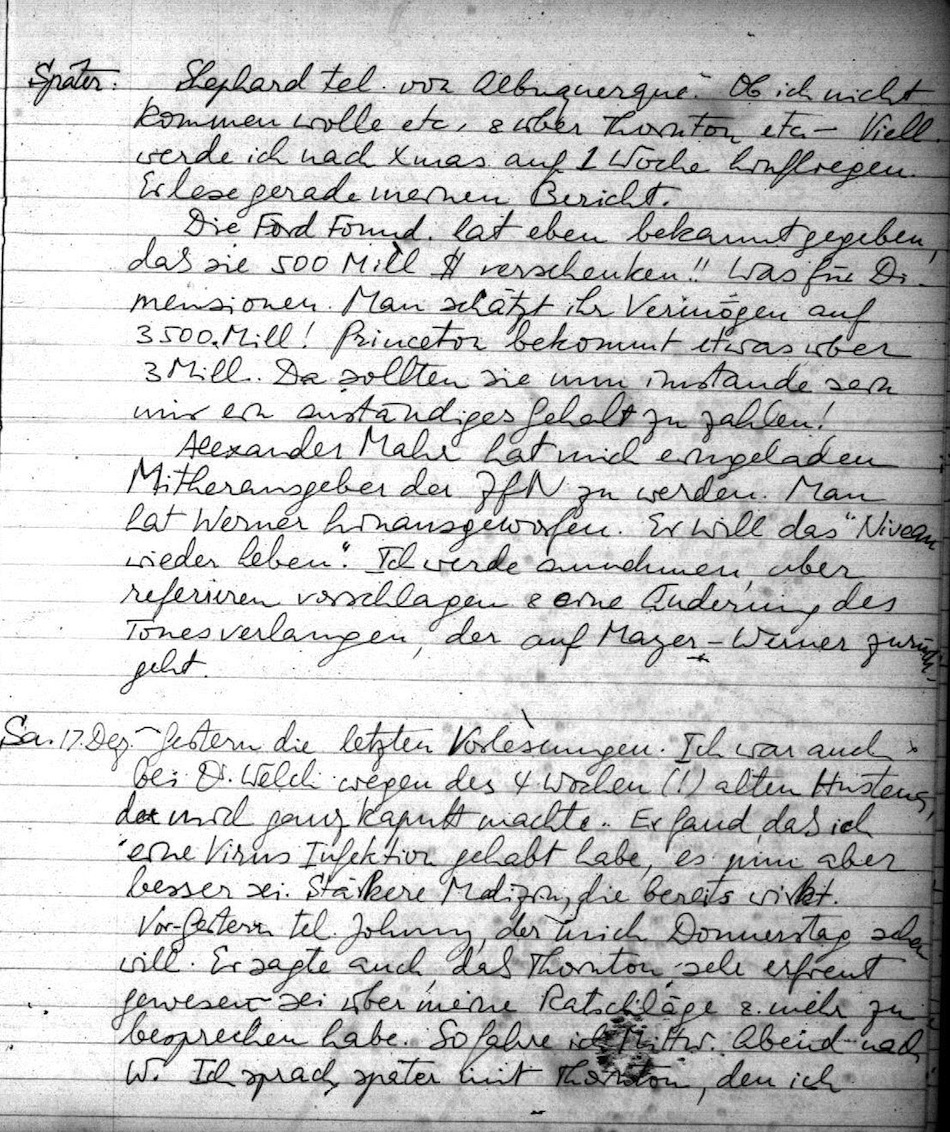 Später: Shephard tel. von Albuquerque. Ob ich nicht
kommen wolle etc, & über Thornton etc – Viell.
werde ich nach Xmas auf 1 Woche hinfliegen.
Er lese gerade meinen Bericht.
Die Ford Found. hat eben bekanntgegeben,
das sie 500 Mill $ verschenken!! Was für Di-
mensionen. Man schätzt ihr Vermögen auf
3500. Mill! Princeton bekommt etwas über
3 Mill. Da sollten sie nun imstande sein
mir ein anständiges Gehalt zu zahlen!
Alexander Mahr hat mich eingeladen
Mitherausgeber der ZfN zu werden. Man
hat Werner hinausgeworfen. Er will das "Niveau
wieder heben". Ich werde annehmen, aber
referieren vorschlagen & eine Änderung des
Tones verlangen, der auf Mayer-Werner zurück-
geht.
Sa. 17. Dez. – Gestern die letzten Vorlesungen. Ich war auch
bei Dr. Welch wegen des 4 Wochen (!) alten Hustens,
der mich ganz kaputt machte. Er fand, das ich
eine Virus Infektion gehabt habe, es nun aber
besser sei. Stärkere Medizin, die bereits wirkt.
Vor-Gestern tel. Johnny, der mich Donnerstag sehen
will. Er sagte auch, das Thornton sehr erfreut
gewesen sei über meine Ratschläge & mehr zu
besprechen habe. So fahre ich Mittw. Abend nach
W. Ich sprach später mit Thornton, den ich